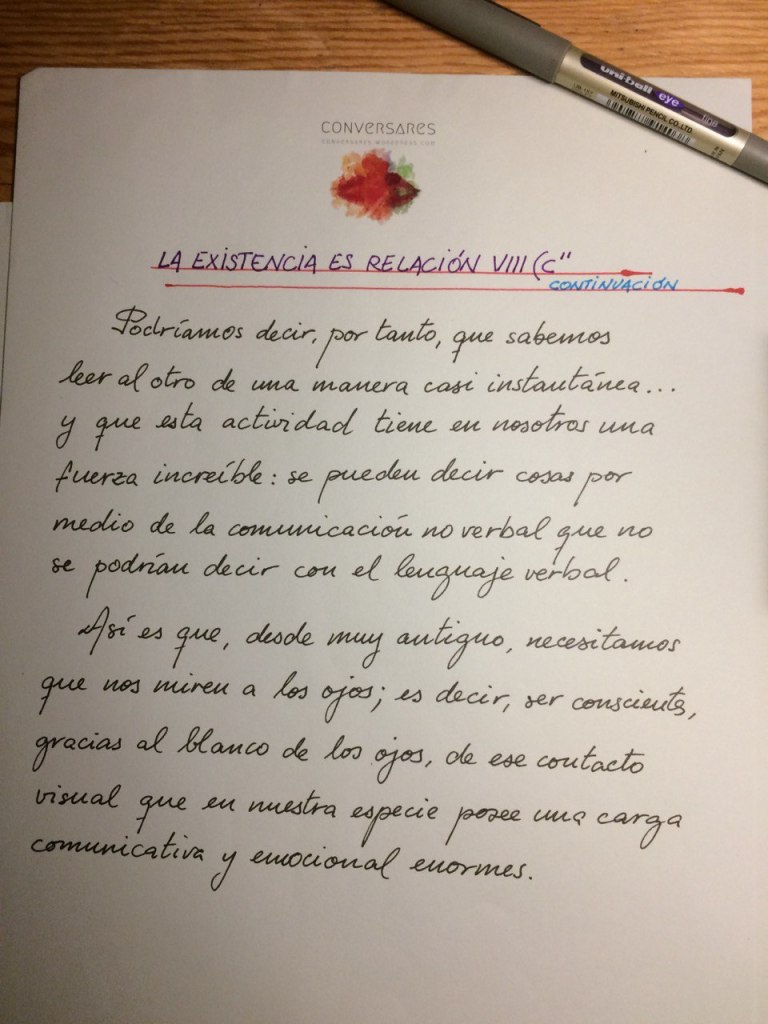 uni-ball eye fine
MITSUBISHI PENCIL CO. LTD
CONVERSARES
CONVERSARES.WORDPRESS.COM
LA EXISTENCIA ES RELACIÓN VIII (C"
CONTINUACIÓN
Podríamos decir, por tanto, que sabemos
leer al otro de una manera casi instantánea...
y que esta actividad tiene en nosotros una
fuerza increíble: se pueden decir cosas por
medio de la comunicación no verbal que no
se podrían decir con el lenguaje verbal.
Así es que, desde muy antiguo, necesitamos
que nos miren a los ojos; es decir, ser conscientes,
gracias al blanco de los ojos, de ese contacto
visual que en nuestra especie posee una carga
comunicativa y emocional enormes.